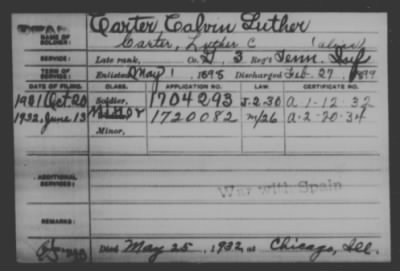 Carter Calvin Luther
NAME OF SOLDIER:
Carter, Luther C (alias)
SERVICE:
Late rank, Co. 3 Reg't Tenn. Inf
TERM OF SERVICE:
Enlisted May 1 1898 Discharged Feb. 27, 1899
DATE OF FILING. CLASS. APPLICATION NO. LAW. CERTIFICATE NO.
1931 Oct 20 Soldier, 1704293 5-2-30 A-1-12-32
1932, June 13 Minor 1720082 m/26 A-2-20-34
Minor,
ADDITIONAL SERVICES:
War with Spain
REMARKS:
Died May 25, 1932, at Chicago, Ill.